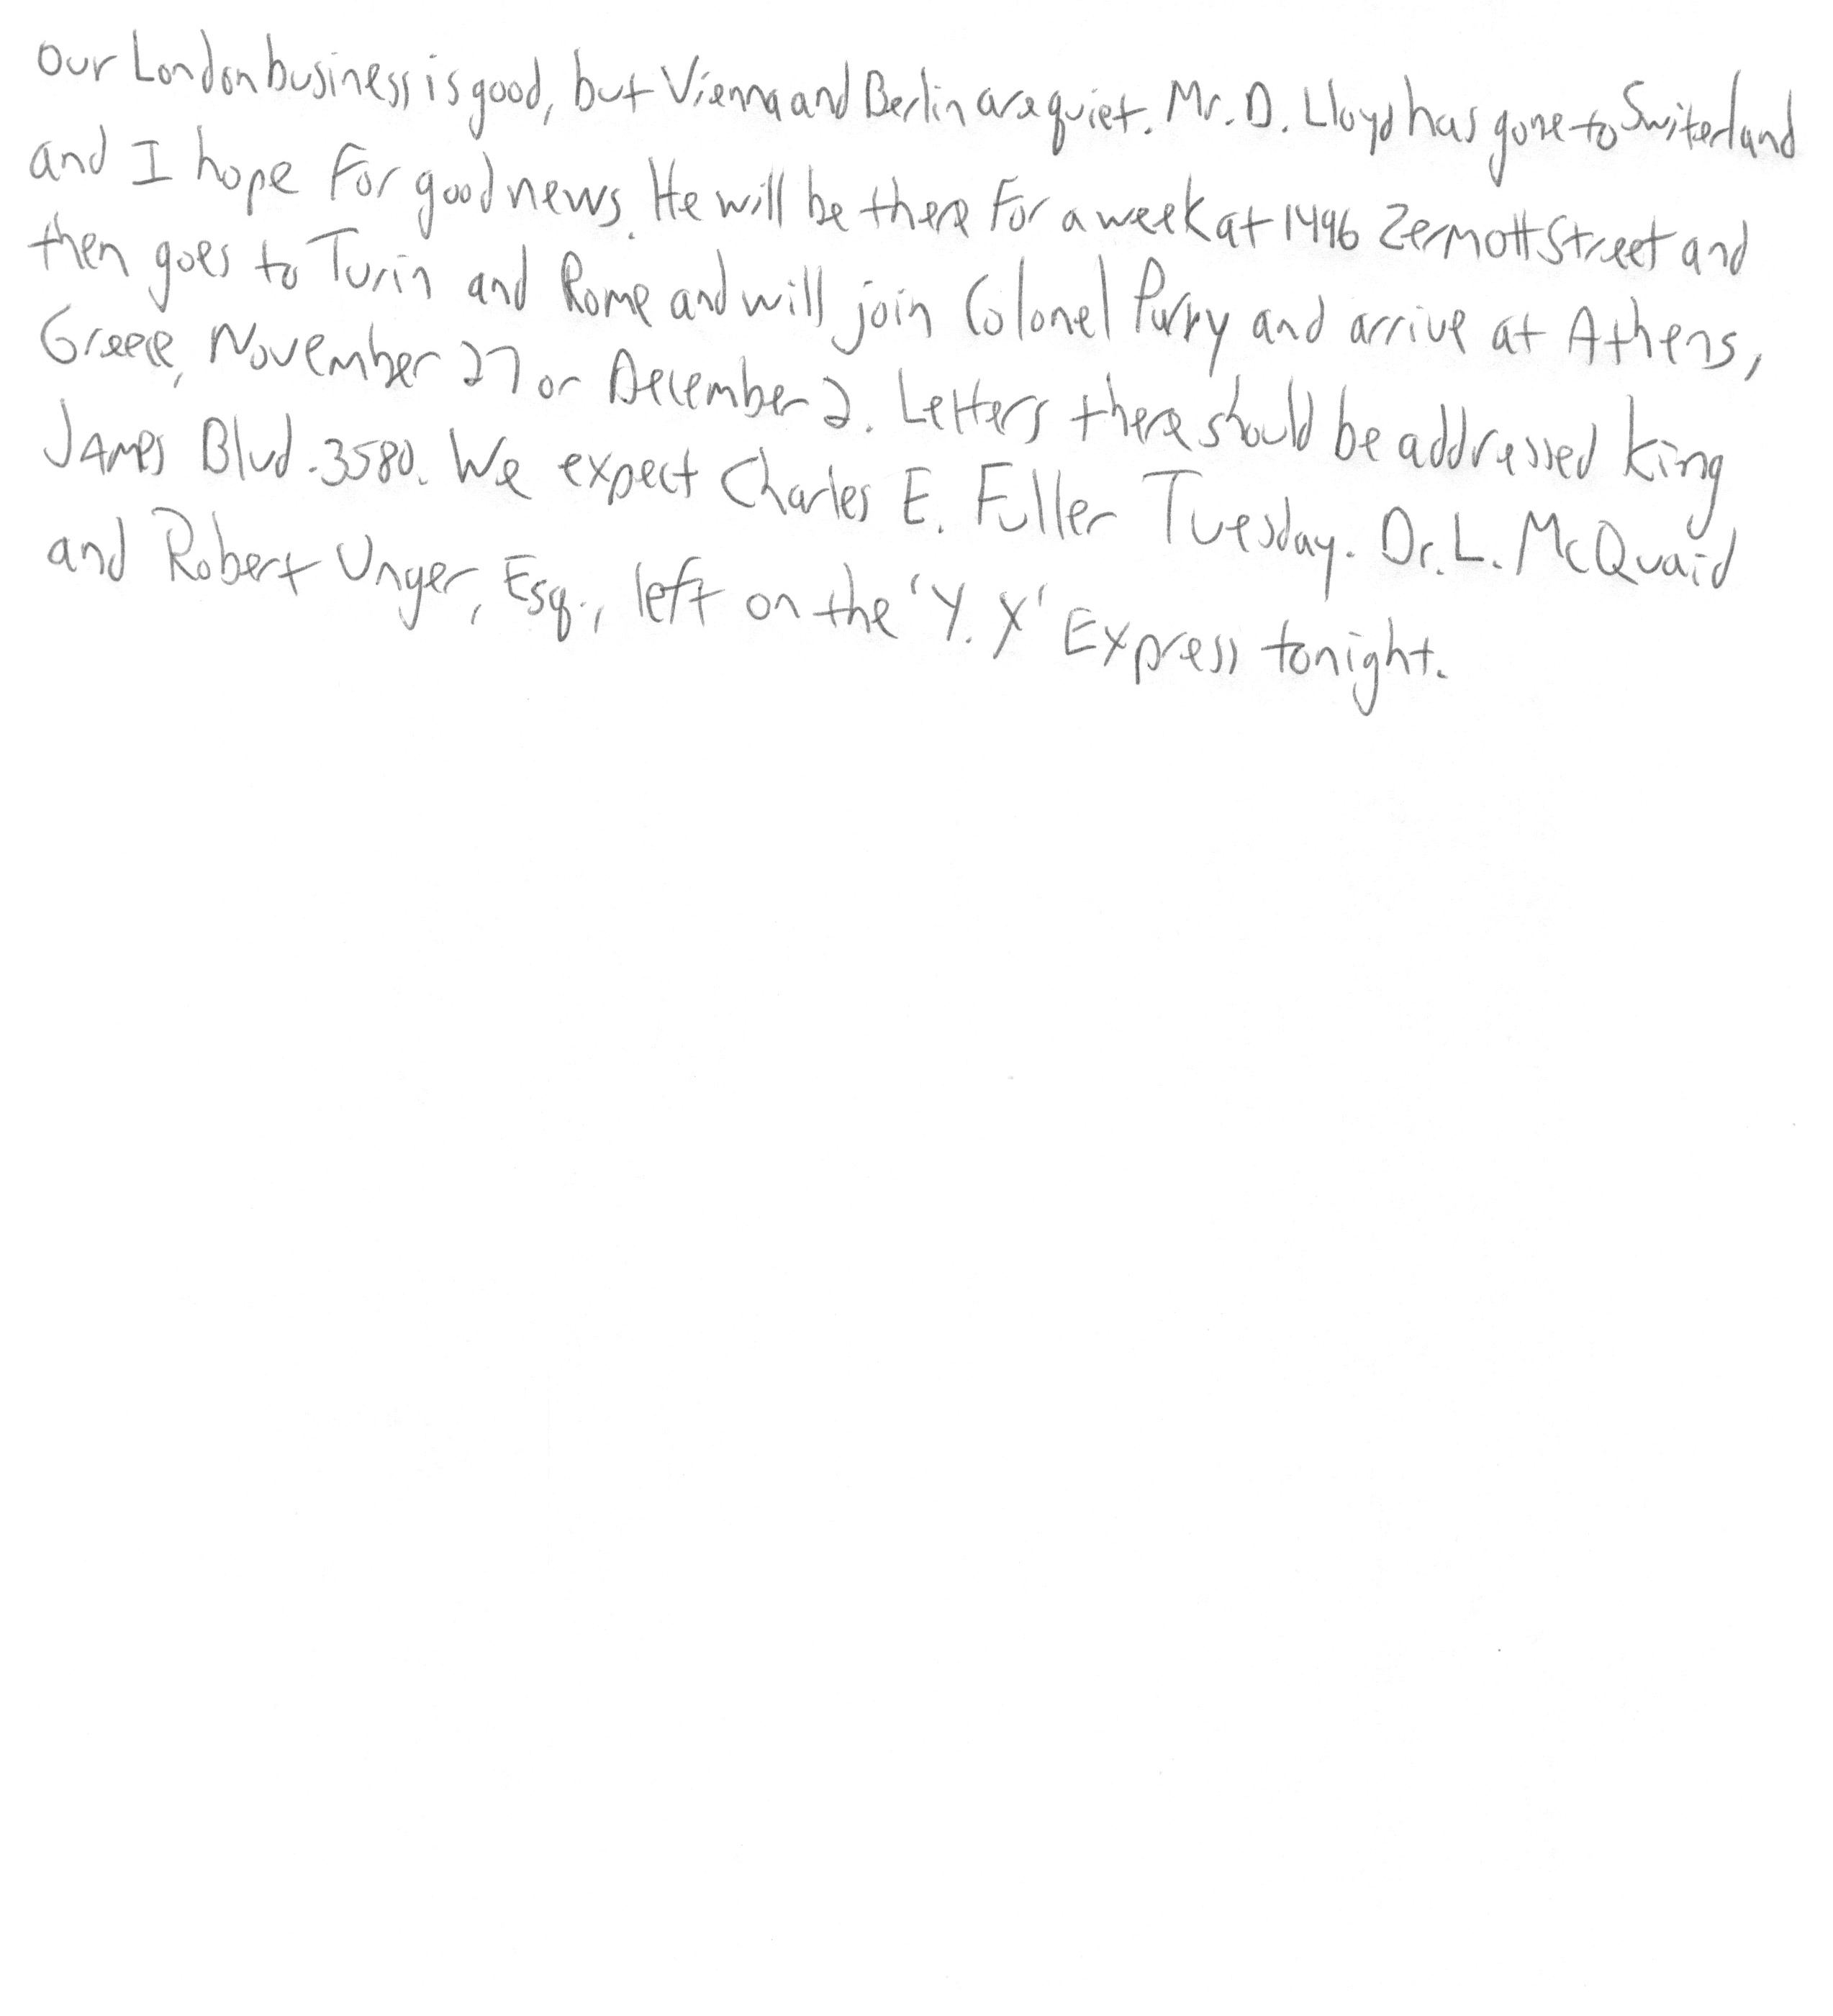 Our London business is good, but Vienna and Berlin are quiet. Mr. D. Lloyd has gone to Switerland
and I hope for good news. He will be there for a week at 1496 Zermott Street and
then goes to Turin and Rome and will join Colonel Purry and arrive at Athens,
Greece, November 27 or December 2. Letters there should be addressed King
James Blvd. 3580. We expect Charles E. Fuller Tuesday. Dr. L. McQuaid
and Robert Unger, Esq., left on the 'Y. X' Express tonight.